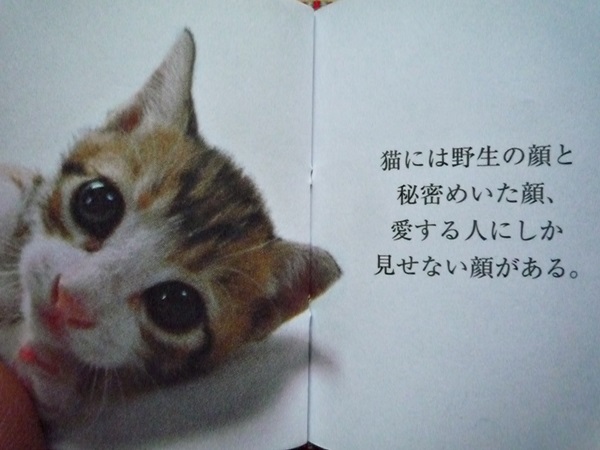 猫には野生の顔と
秘密めいた顔、
愛する人にしか
見せない顔がある。